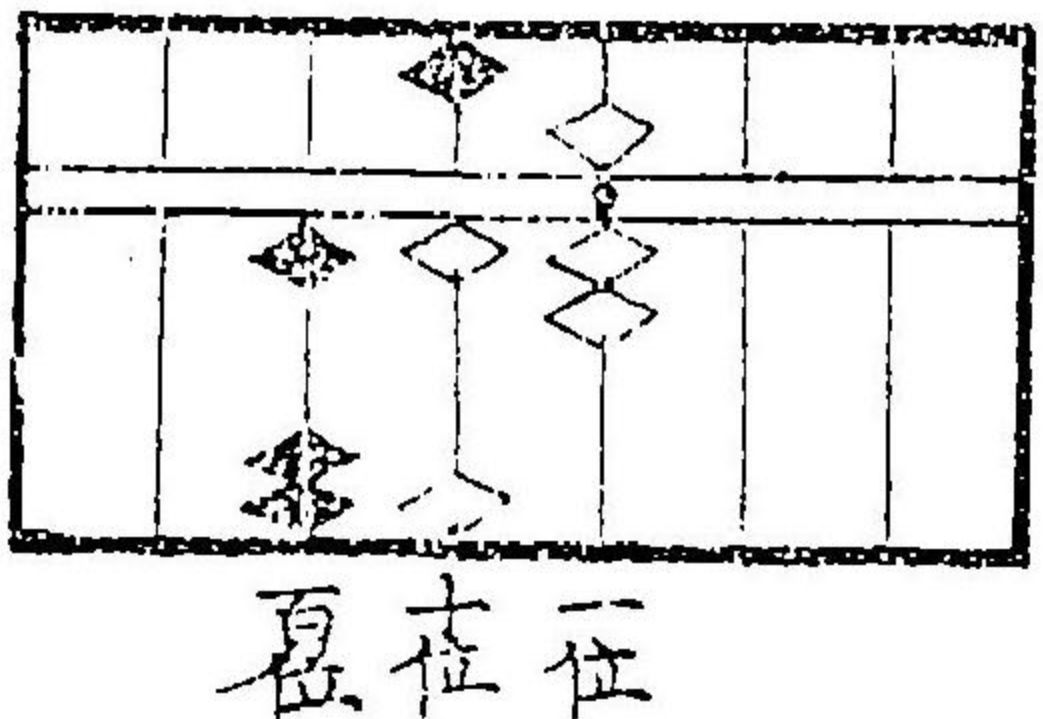 百位 十位 一位